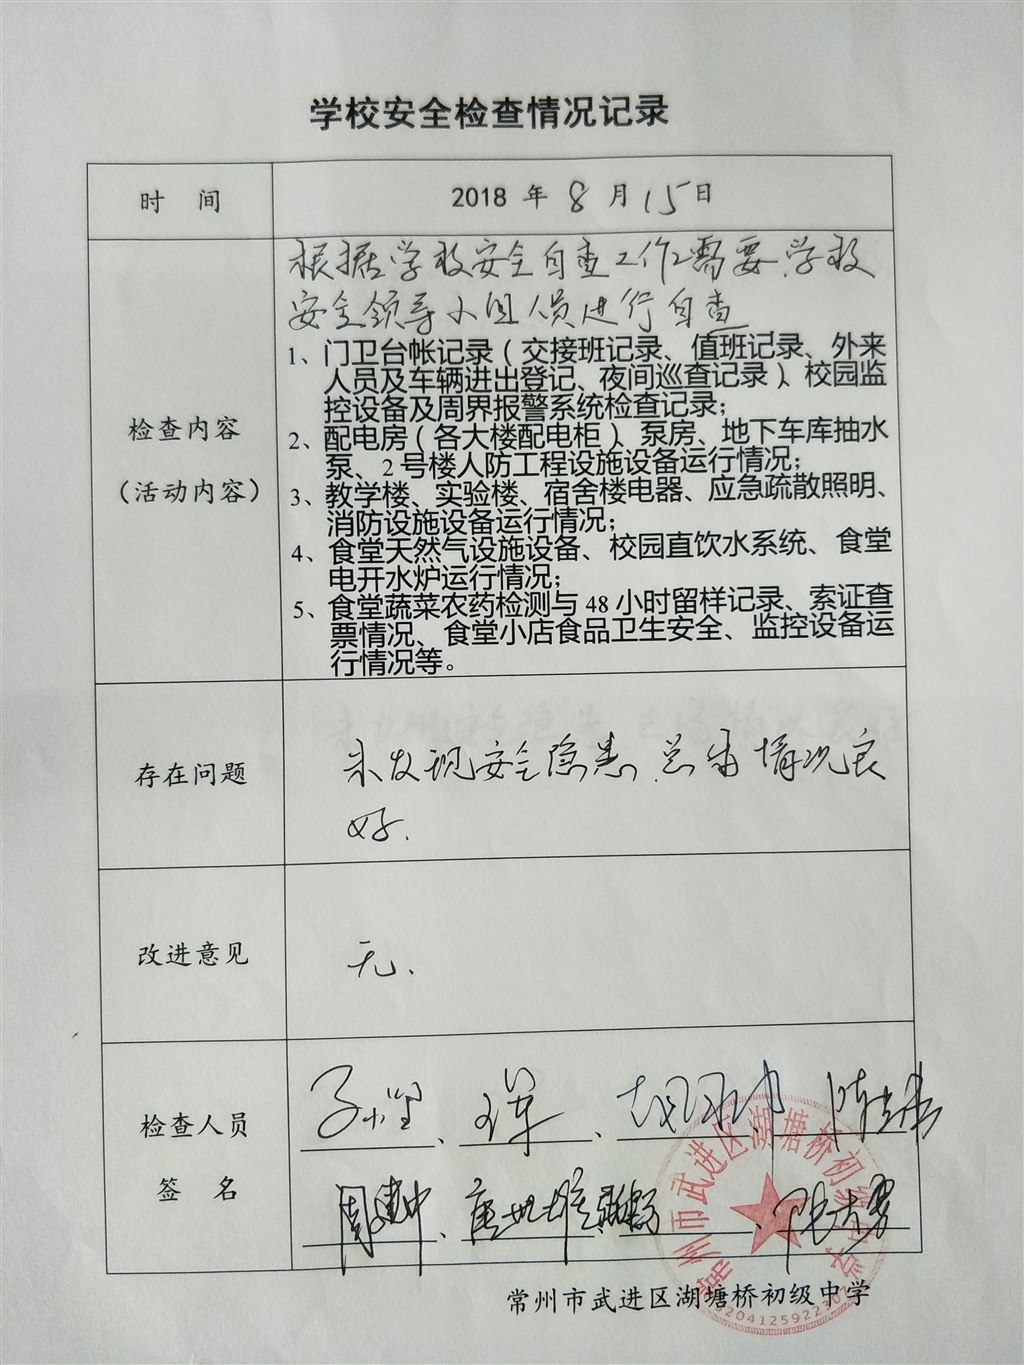 学校安全检查情况记录
时 间
2018 年 8 月 15 日
根据学校安全自查工作需要,学校
安全领导小组人员进行自查
检查内容
（活动内容）
1、门卫台帐记录（交接班记录、值班记录、外来
人员及车辆进出登记、夜间巡查记录）、校园监
控设备及周界报警系统检查记录；
2、配电房（各大楼配电柜）、泵房、地下车库抽水
泵、2 号楼人防工程设施设备运行情况；
3、教学楼、实验楼、宿舍楼电器、应急疏散照明、
消防设施设备运行情况；
4、食堂天然气设施设备、校园直饮水系统、食堂
电开水炉运行情况；
5、食堂蔬菜农药检测与 48 小时留样记录、索证查
票情况、食堂小店食品卫生安全、监控设备运
行情况等。
存在问题
未发现安全隐患,总体情况良
好.
改进意见
无.
检查人员
签 名
周建中
常州市武进区湖塘桥初级中学
常州市武进区湖塘桥初级中学